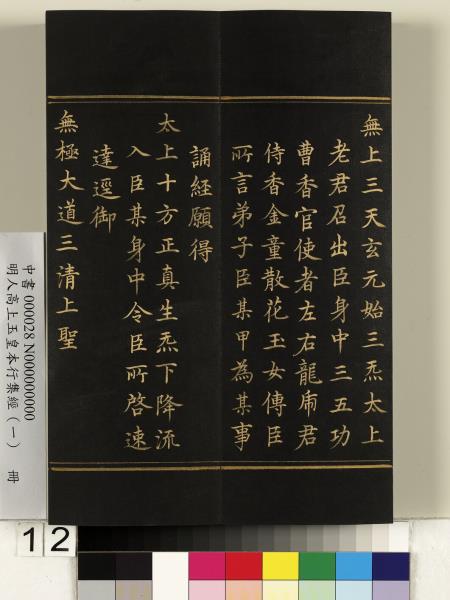 無上三天玄元始三炁太上
老君召出臣身中三五功
曹香官使者左右龍虎君
侍香金童散花玉女傳臣
所言弟子臣某甲為某事
誦經願得
太上十方正真生炁下降流
入臣某身中令臣所啓速
達逕御
無極大道三清上聖
中書 000028 N000000000
明人高上玉皇本行集經（一） 冊
12